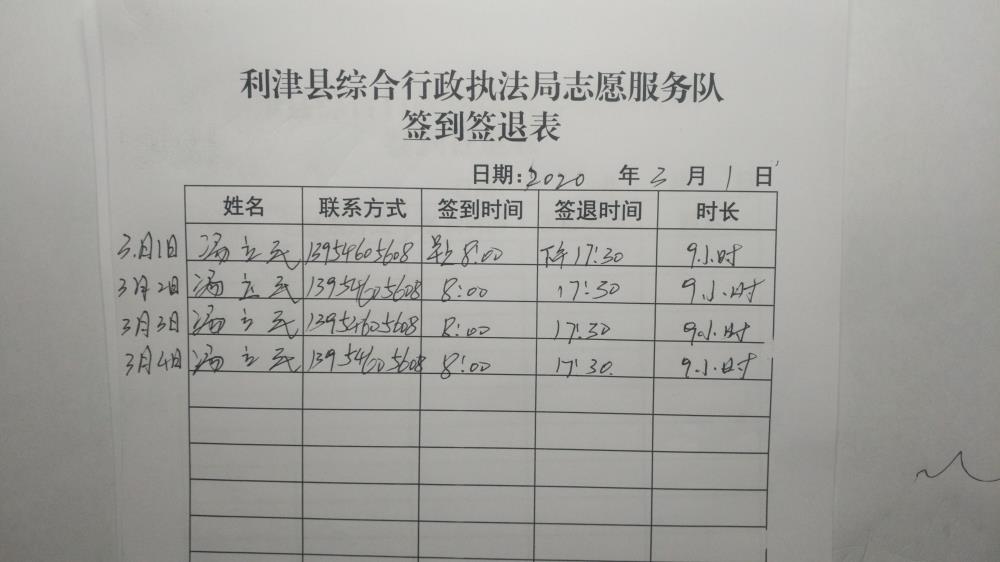 利津县综合行政执法局志愿服务队
签到签退表
日期:2020 年 3 月 1 日
姓名 联系方式 签到时间 签退时间 时长
3月1日 冯立民 13954605608 早上8:00 下午17:30 9小时
3月2日 冯立民 13954605608 8:00 17:30 9小时
3月3日 冯立民 13954605608 8:00 17:30 9小时
3月4日 冯立民 13954605608 8:00 17:30 9小时